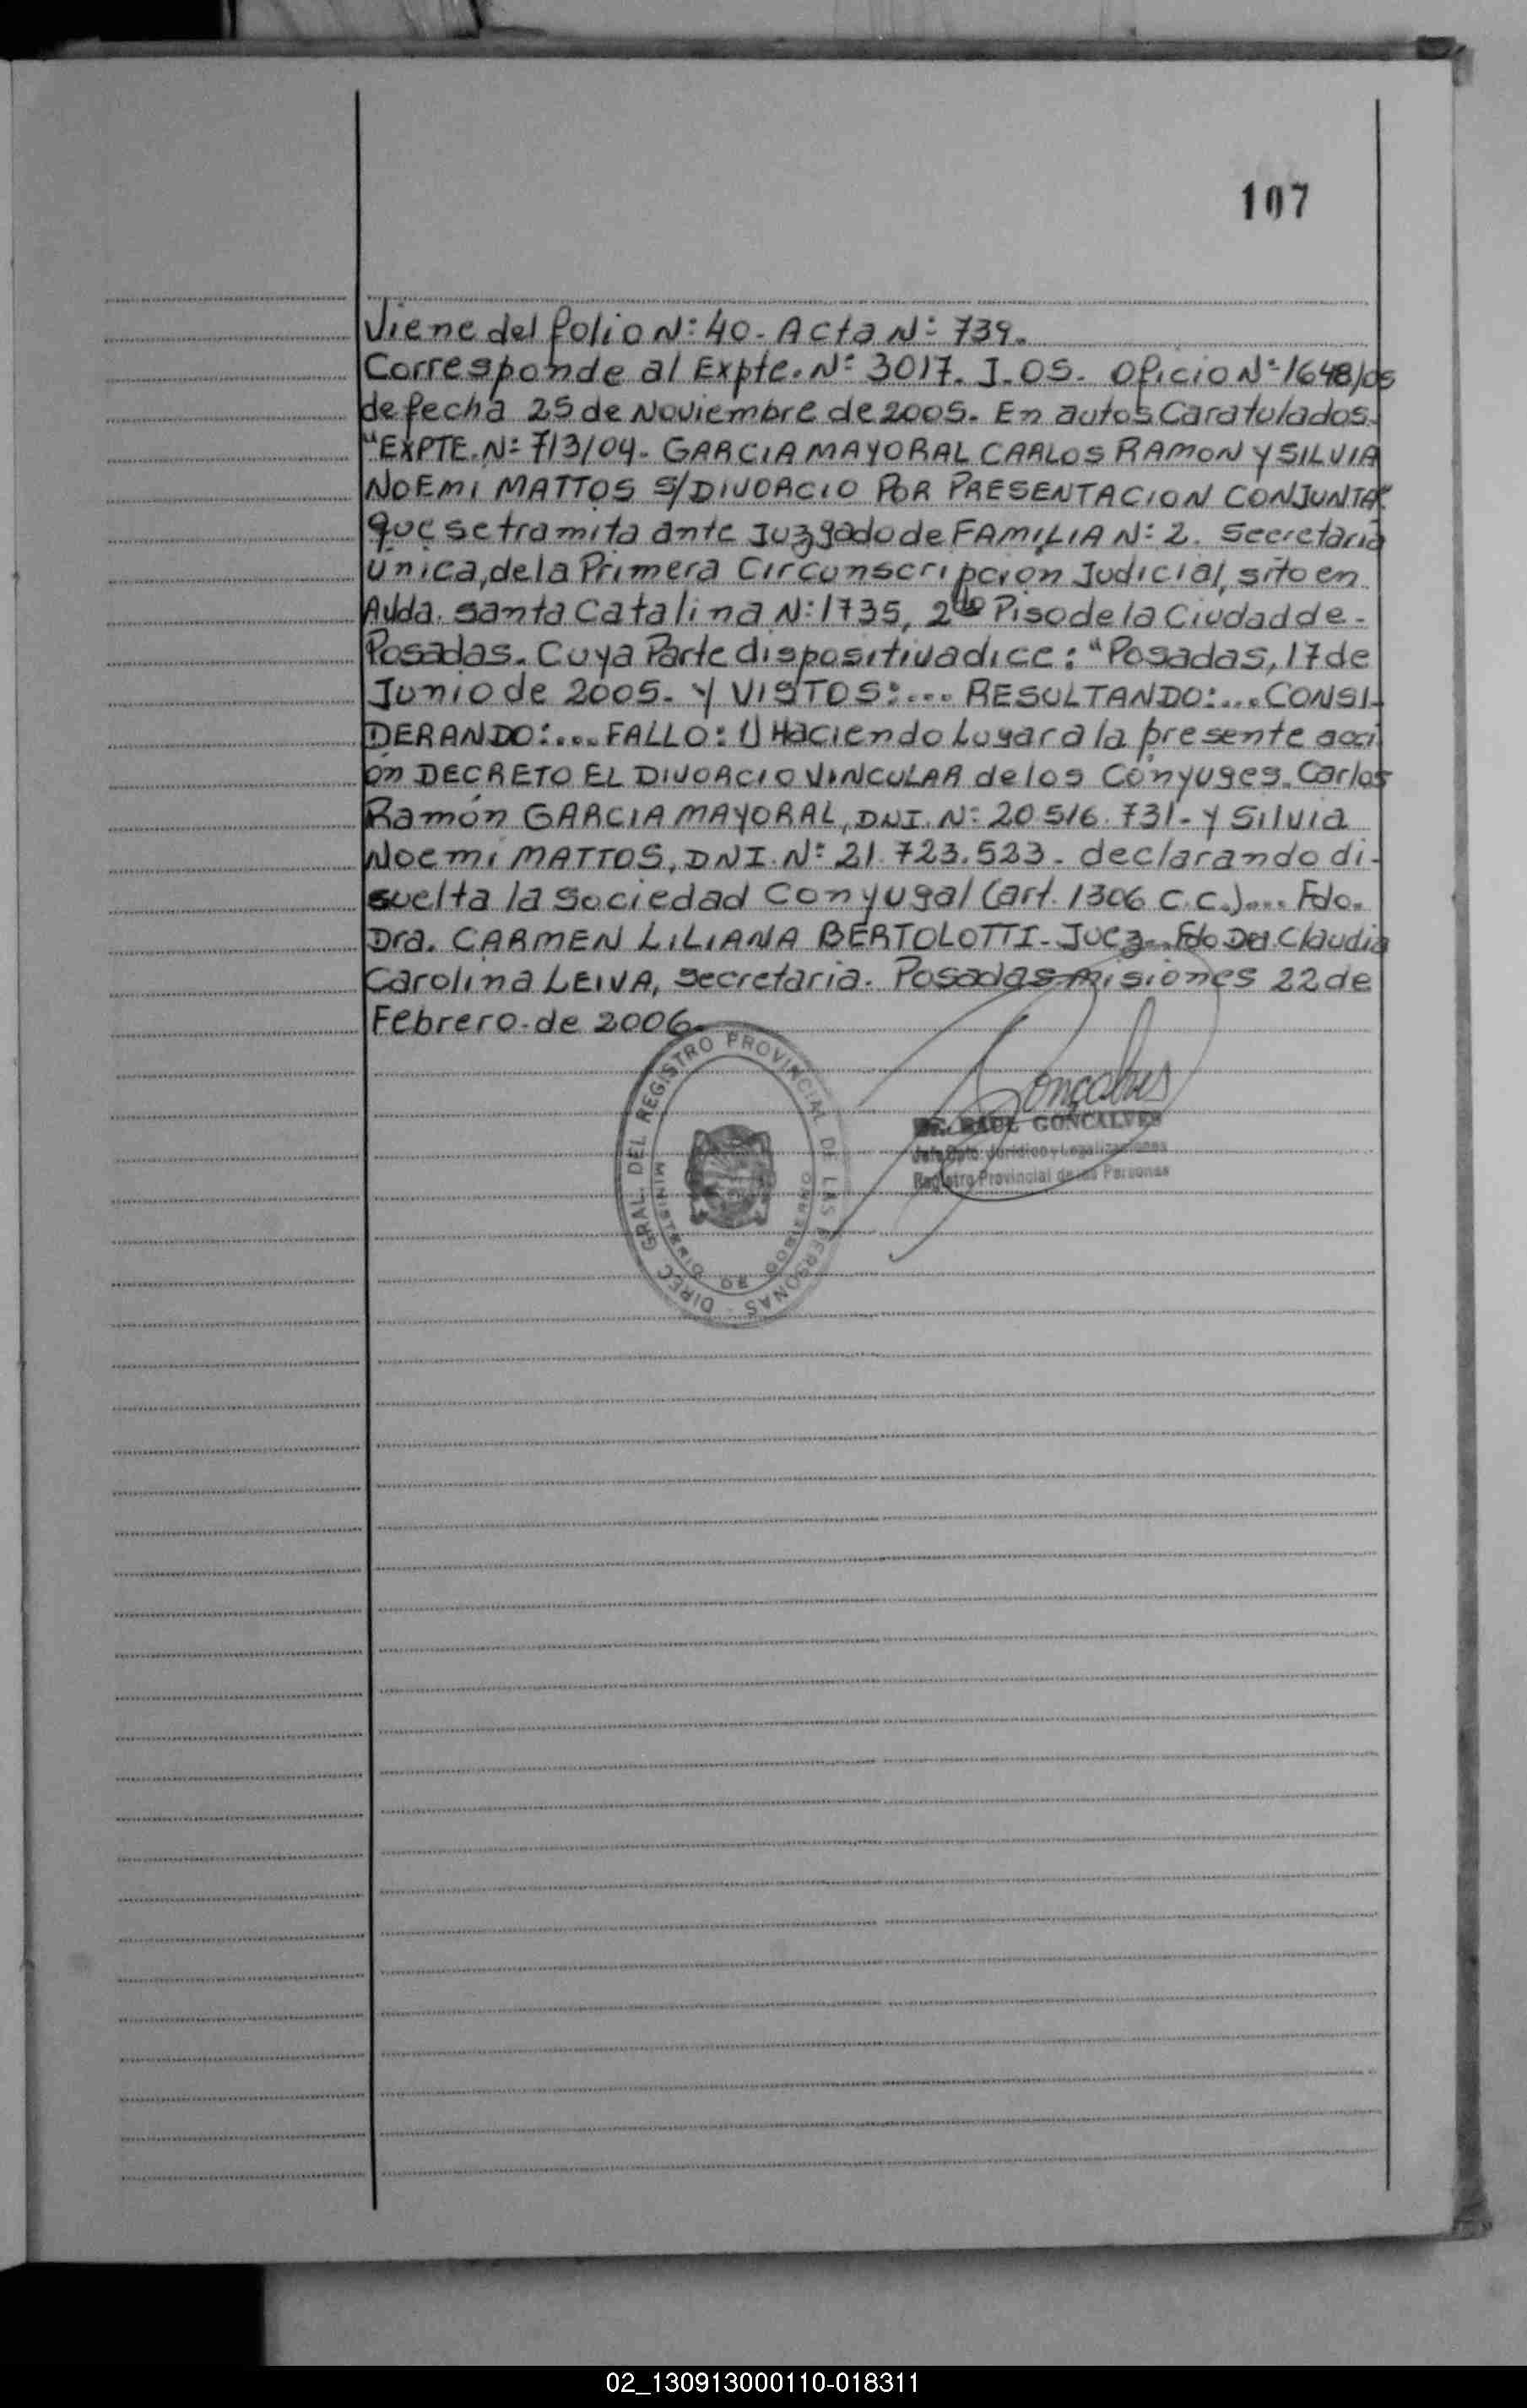 107
Viene del folio N: 40 - Acta N: 739.
Corresponde al Expte. N: 3017. J. 05. Oficio N: 1648/05
de fecha 25 de Noviembre de 2005. En autos Caratulados.
"EXPTE. N: 713/04. GARCIA MAYORAL CARLOS RAMON Y SILVIA
NOEMI MATTOS S/DIVORCIO POR PRESENTACION CONJUNTA"
que se tramita ante Juzgado de FAMILIA N: 2. Secretaria
Unica, de la Primera Circunscripcion Judicial, sito en
Avda. Santa Catalina N: 1735, 2do Piso de la Ciudad de -
Posadas. Cuya Parte dispositiva dice: "Posadas, 17 de
Junio de 2005. Y VISTOS:... RESULTANDO:... CONSI-
DERANDO:... FALLO: 1) Haciendo Lugar a la presente acci
ón DECRETO EL DIVORCIO VINCULAR de los Cónyuges. Carlos
Ramón GARCIA MAYORAL, DNI. N: 20 516. 731 - Y Silvia
Noemi MATTOS, DNI. N: 21. 723. 523 - declarando di-
suelta la Sociedad Conyugal (art. 1306 C.C.).... Fdo.
Dra. CARMEN LILIANA BERTOLOTTI - Juez.. Fdo Dra. Claudia
Carolina LEIVA, Secretaria. Posadas Misiones 22 de
Febrero de 2006.
DIREC. GRAL. DEL REGISTRO PROVINCIAL DE LAS PERSONAS
MINISTERIO DE GOBIERNO
Goncalves
Dr. RAUL GONCALVES
Jefe Dpto. Jurídico y Legalizaciones
Registro Provincial de las Personas
02_130913000110-018311